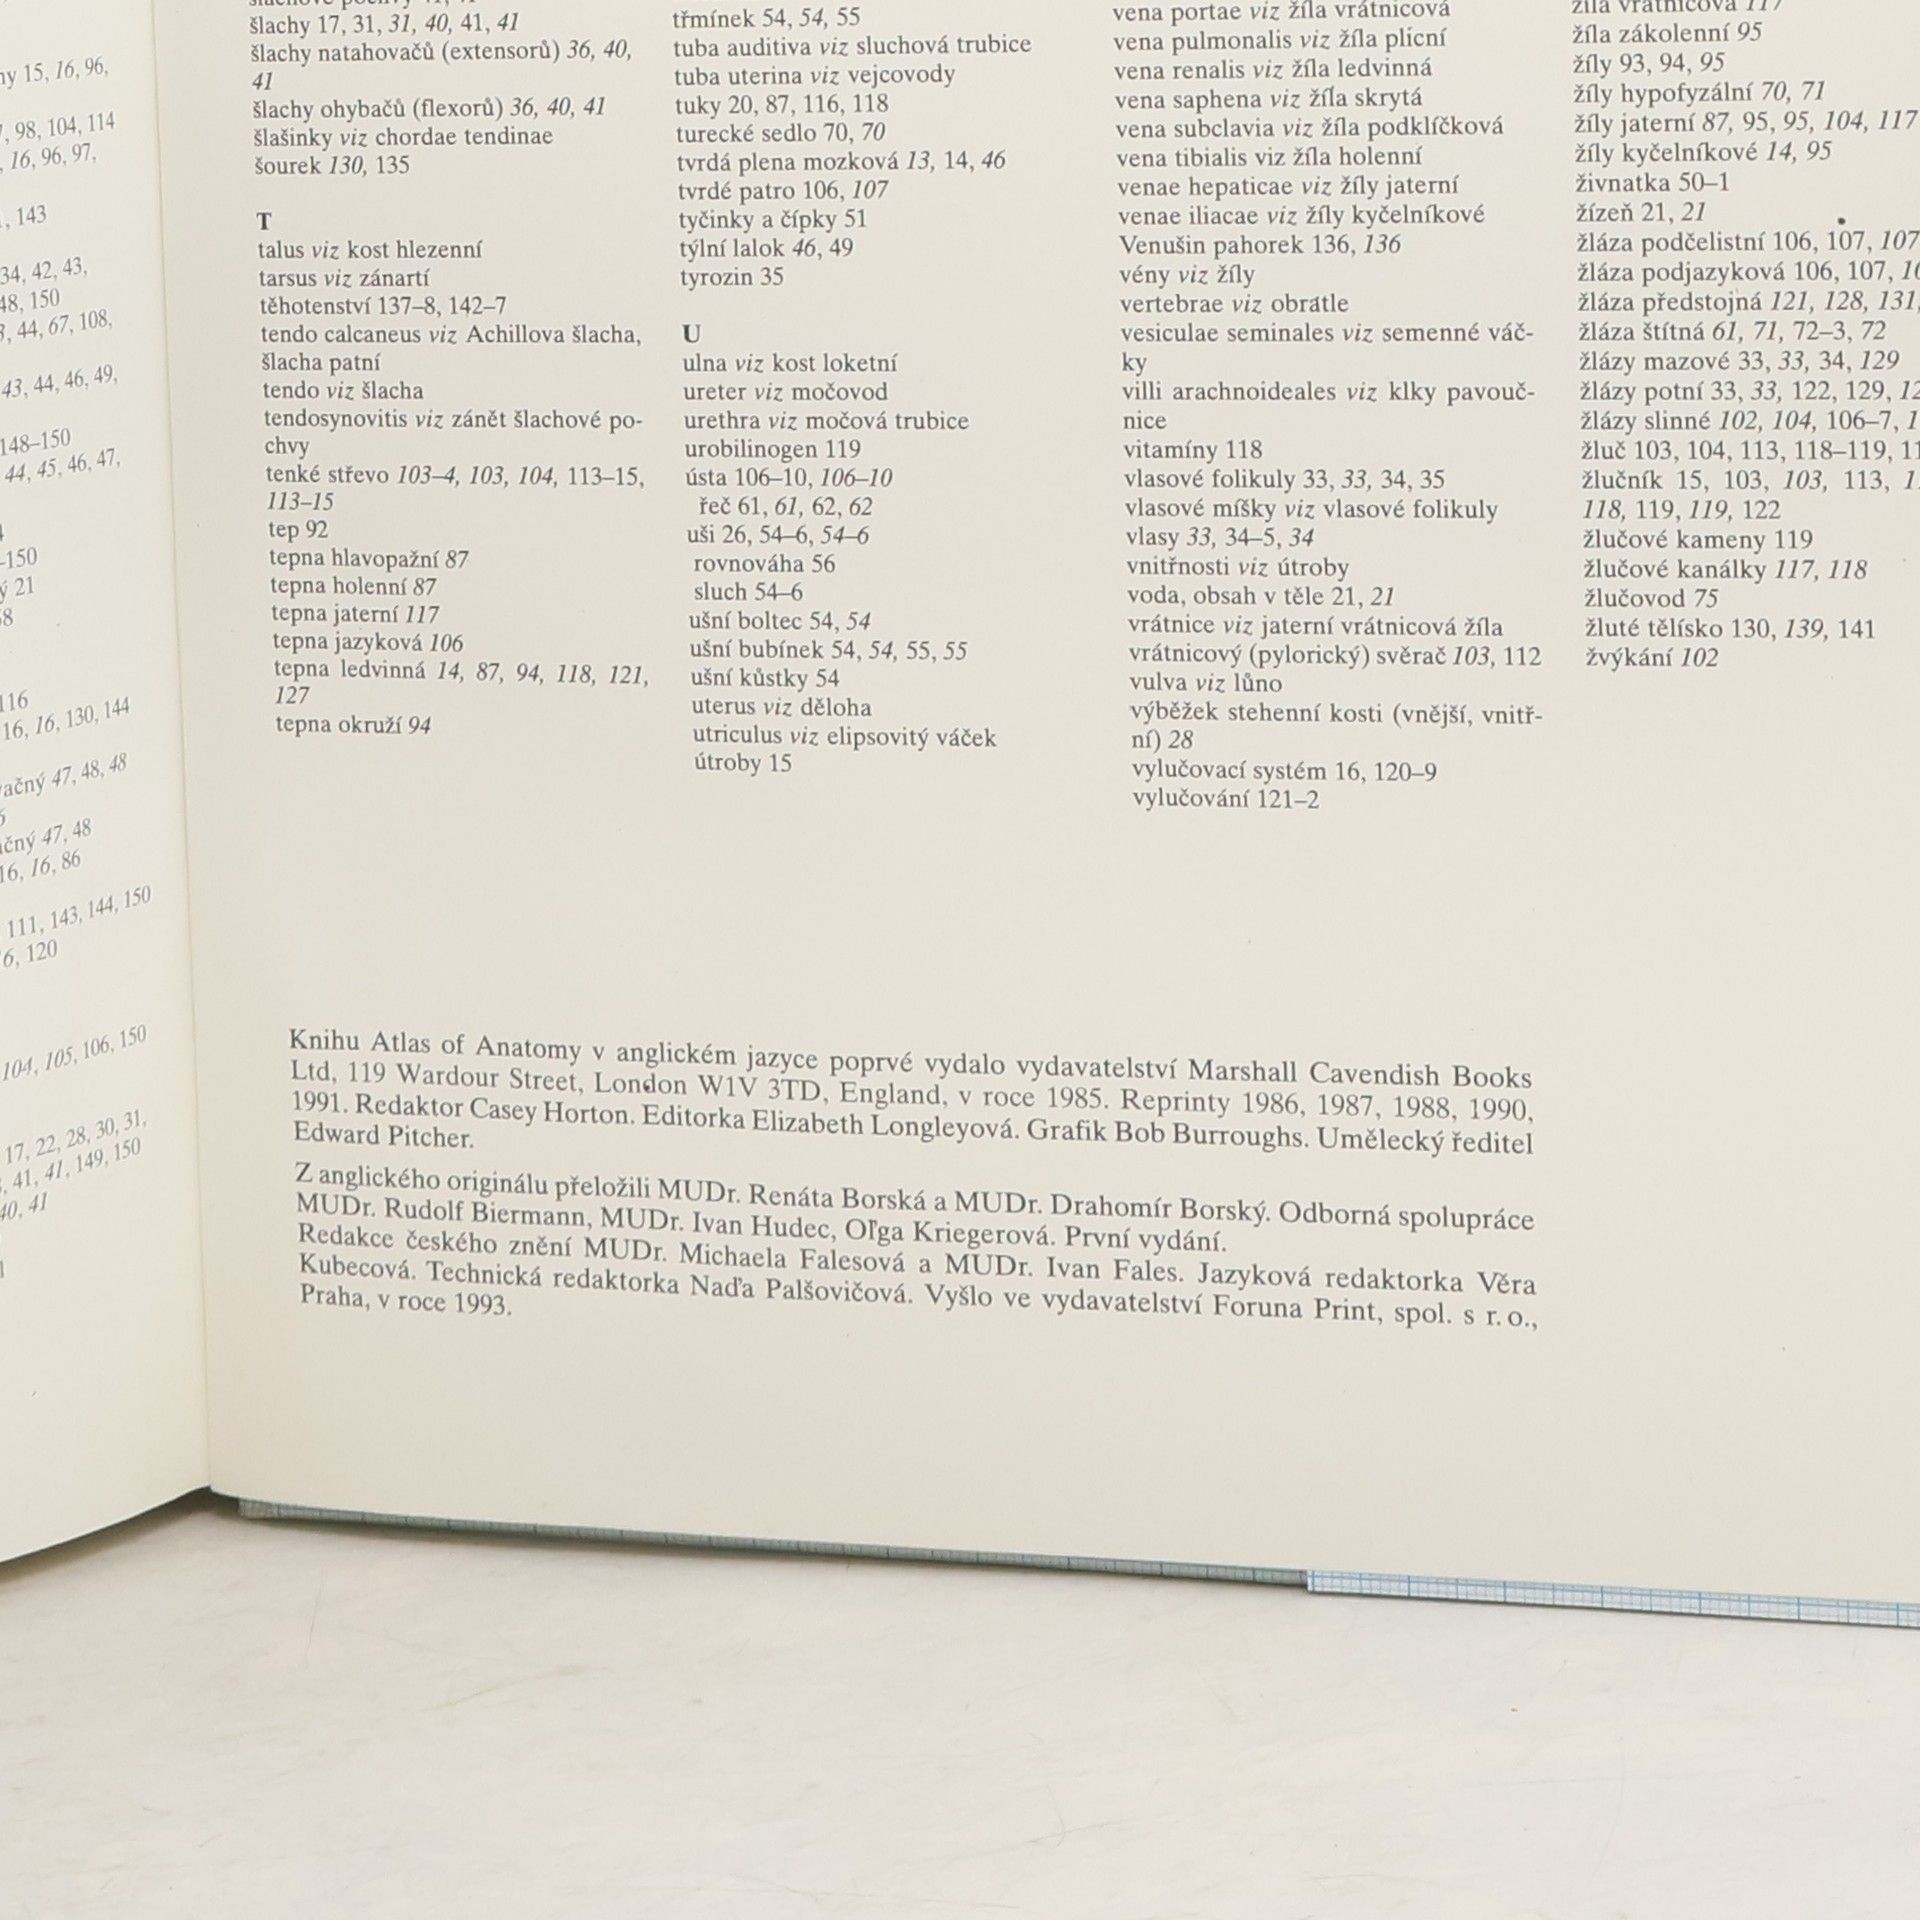 ny 15, 16, 96,
98, 104, 114
16, 96, 97,
143
34, 42, 43,
48, 150
44, 67, 108,
43, 44, 46, 49,
148–150
44, 45, 46, 47,
–150
ý 21
116
16, 16, 130, 144
ačný 47, 48, 48
ačný 47, 48
16, 16, 86
111, 143, 144, 150
6, 120
104, 105, 106, 150
17, 22, 28, 30, 31,
41, 41, 149, 150
40, 41
šlachy 17, 31, 31, 40, 41, 41
šlachy natahovačů (extensorů) 36, 40,
41
šlachy ohybačů (flexorů) 36, 40, 41
šlašinky viz chordae tendinae
šourek 130, 135
T
talus viz kost hlezenní
tarsus viz zánartí
těhotenství 137–8, 142–7
tendo calcaneus viz Achillova šlacha,
šlacha patní
tendo viz šlacha
tendosynovitis viz zánět šlachové po-
chvy
tenké střevo 103–4, 103, 104, 113–15,
113–15
tep 92
tepna hlavopažní 87
tepna holenní 87
tepna jaterní 117
tepna jazyková 106
tepna ledvinná 14, 87, 94, 118, 121,
127
tepna okruží 94
třmínek 54, 54, 55
tuba auditiva viz sluchová trubice
tuba uterina viz vejcovody
tuky 20, 87, 116, 118
turecké sedlo 70, 70
tvrdá plena mozková 13, 14, 46
tvrdé patro 106, 107
tyčinky a čípky 51
týlní lalok 46, 49
tyrozin 35
U
ulna viz kost loketní
ureter viz močovod
urethra viz močová trubice
urobilinogen 119
ústa 106–10, 106–10
řeč 61, 61, 62, 62
uši 26, 54–6, 54–6
rovnováha 56
sluch 54–6
ušní boltec 54, 54
ušní bubínek 54, 54, 55, 55
ušní kůstky 54
uterus viz děloha
utriculus viz elipsovitý váček
útroby 15
vena portae viz žíla vrátnicová
vena pulmonalis viz žíla plicní
vena renalis viz žíla ledvinná
vena saphena viz žíla skrytá
vena subclavia viz žíla podklíčková
vena tibialis viz žíla holenní
venae hepaticae viz žíly jaterní
venae iliacae viz žíly kyčelníkové
Venušin pahorek 136, 136
vény viz žíly
vertebrae viz obratle
vesiculae seminales viz semenné váč-
ky
villi arachnoideales viz klky pavouč-
nice
vitamíny 118
vlasové folikuly 33, 33, 34, 35
vlasové míšky viz vlasové folikuly
vlasy 33, 34–5, 34
vnitřnosti viz útroby
voda, obsah v těle 21, 21
vrátnice viz jaterní vrátnicová žíla
vrátnicový (pylorický) svěrač 103, 112
vulva viz lůno
výběžek stehenní kosti (vnější, vnitř-
ní) 28
vylučovací systém 16, 120–9
vylučování 121–2
žíla vrátnicová 117
žíla zákolenní 95
žíly 93, 94, 95
žíly hypofyzální 70, 71
žíly jaterní 87, 95, 95, 104, 117
žíly kyčelníkové 14, 95
živnatka 50–1
žízeň 21, 21
žláza podčelistní 106, 107, 107
žláza podjazyková 106, 107,
žláza předstojná 121, 128, 131,
žláza štítná 61, 71, 72–3, 72
žlázy mazové 33, 33, 34, 129
žlázy potní 33, 33, 122, 129,
žlázy slinné 102, 104, 106–7,
žluč 103, 104, 113, 118–119,
žlučník 15, 103, 103, 113,
118, 119, 119, 122
žlučové kameny 119
žlučové kanálky 117, 118
žlučovod 75
žluté tělísko 130, 139, 141
žvýkání 102
Knihu Atlas of Anatomy v anglickém jazyce poprvé vydalo vydavatelství Marshall Cavendish Books
Ltd, 119 Wardour Street, London W1V 3TD, England, v roce 1985. Reprinty 1986, 1987, 1988, 1990,
1991. Redaktor Casey Horton. Editorka Elizabeth Longleyová. Grafik Bob Burroughs. Umělecký ředitel
Edward Pitcher.
Z anglického originálu přeložili MUDr. Renáta Borská a MUDr. Drahomír Borský. Odborná spolupráce
MUDr. Rudolf Biermann, MUDr. Ivan Hudec, Oľga Kriegerová. První vydání.
Redakce českého znění MUDr. Michaela Falesová a MUDr. Ivan Fales. Jazyková redaktorka Věra
Kubecová. Technická redaktorka Naďa Palšovičová. Vyšlo ve vydavatelství Foruna Print, spol. s r. o.,
Praha, v roce 1993.